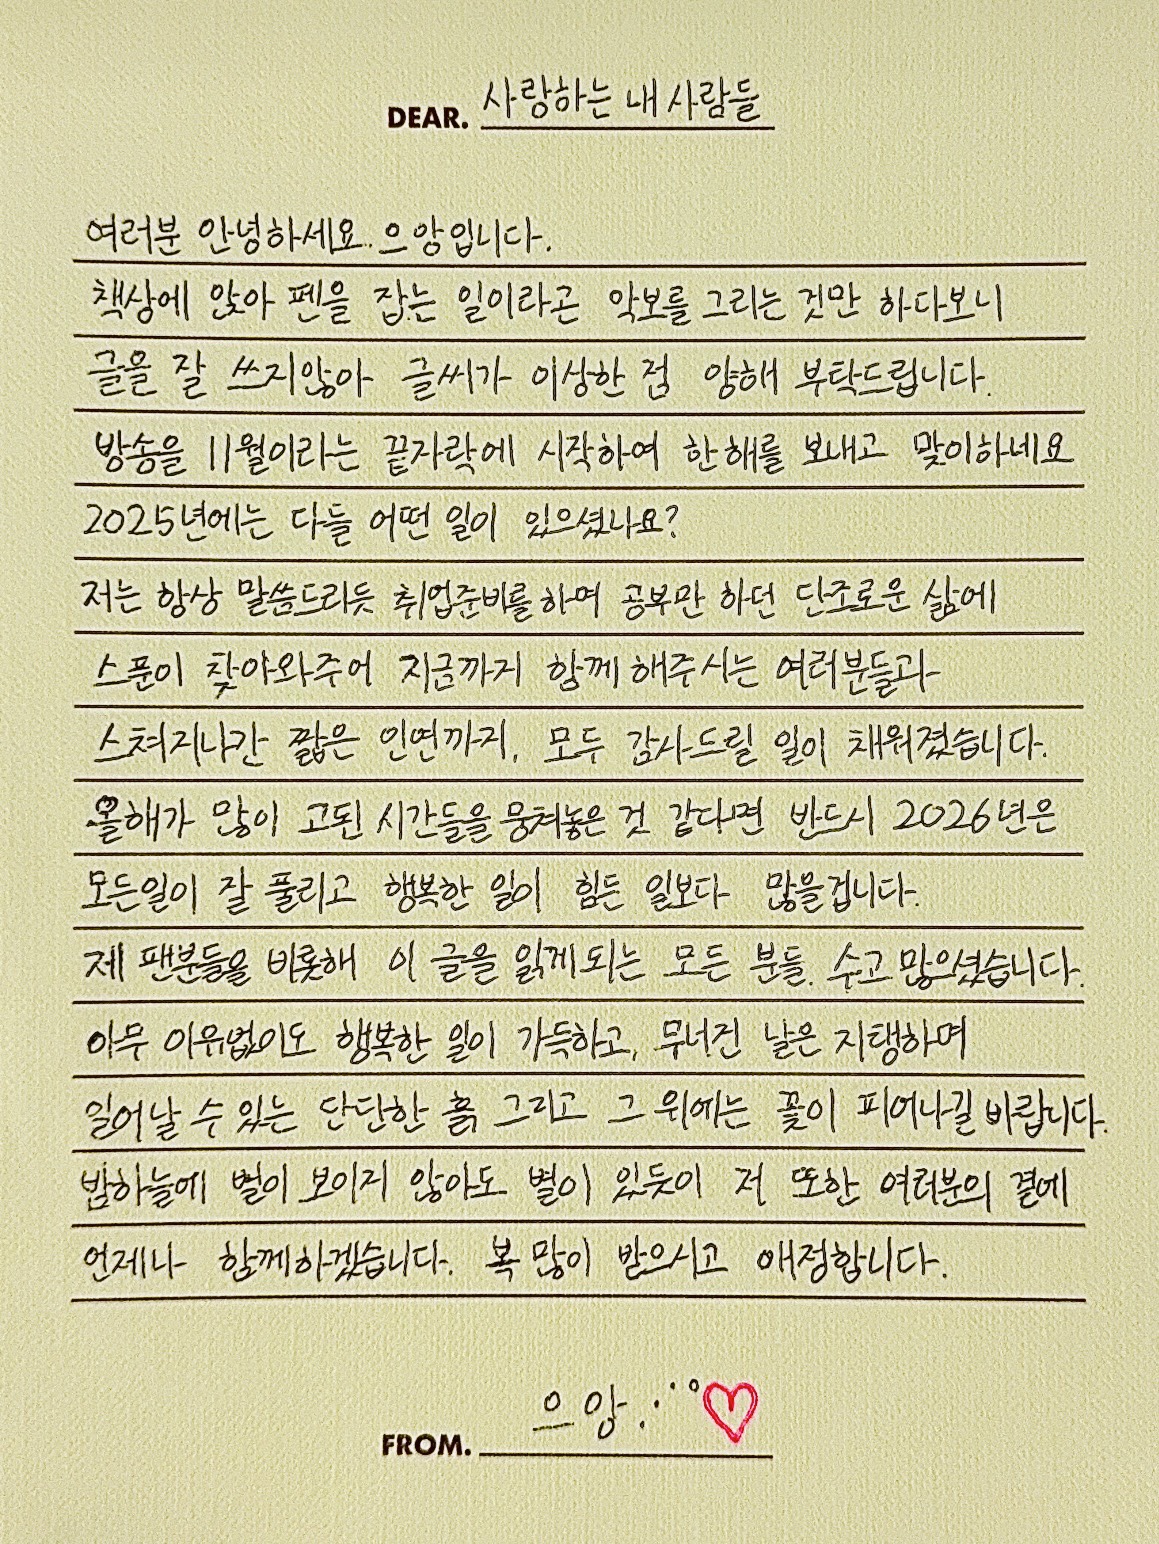 DEAR. 사랑하는 내 사람들
여러분 안녕하세요. 으앙입니다.
책상에 앉아 펜을 잡는 일이라곤 악보를 그리는 것만 하다보니
글을 잘 쓰지않아 글씨가 이상한 점 양해 부탁드립니다.
방송을 11월이라는 끝자락에 시작하여 한해를 보내고 맞이하네요
2025년에는 다들 어떤 일이 있으셨나요?
저는 항상 말씀드리듯 취업준비를 하며 공부만 하던 단조로운 삶에
스푼이 찾아와주어 지금까지 함께 해주시는 여러분들과
스쳐지나간 짧은 인연까지, 모두 감사드릴 일이 채워졌습니다.
올해가 많이 고된 시간들을 뭉쳐놓은 것 같다면 반드시 2026년은
모든일이 잘 풀리고 행복한 일이 힘든 일보다 많을겁니다.
제 팬분들을 비롯해 이 글을 읽게되는 모든 분들. 수고 많으셨습니다.
아무 이유없이도 행복한 일이 가득하고, 무너진 날은 지탱하며
일어날 수 있는 단단한 흙 그리고 그 위에는 꽃이 피어나길 바랍니다.
밤하늘에 별이 보이지 않아도 별이 있듯이 저 또한 여러분의 곁에
언제나 함께하겠습니다. 복 많이 받으시고 애정합니다.
FROM. 으앙